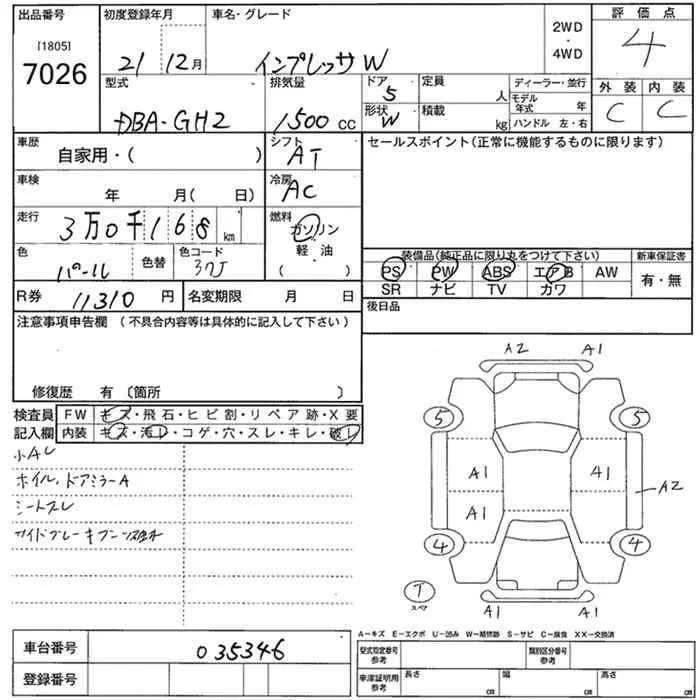 出品番号 初度登録年月 車名・グレード 評価点
[1805]
7026
21 12月 インプレッサ W 2WD・4WD 4
型式 排気量 ドア 定員 ディーラー・並行 外装 内装
5 人 モデル年式 年
DBA-GH2 1500 cc 形状 W 積載 kg ハンドル 左・右 C C
車歴 シフト セールスポイント(正常に機能するものに限ります)
自家用・( ) AT
車検 冷房
年 月( 日) AC
走行 燃料
3万0千168 km ガソリン
色 色替 色コード 軽・油 装備品(純正品に限り丸をつけて下さい) 新車保証書
パール 37J ( ) PS PW ABS エアB AW 有・無
R券 11310 円 名変期限 月 日 SR ナビ TV カワ
注意事項申告欄 (不具合内容等は具体的に記入して下さい) 後日品
修復歴 有 〔箇所 〕
検査員 FW キズ・飛石・ヒビ割・リペア跡・X要
記入欄 内装 キズ・汚レ・コゲ・穴・スレ・キレ・破レ
小AU
ホイル.ドアミラーA
シートスレ
サイドブレーキブーツ破れ
A2 A1
5 5
A1 A1 A2
A1
4 4
T
スペア
A1 A1
車台番号 035346
A-キズ E-エクボ U-凹み W-補修跡 S-サビ C-腐食 XX-交換済
型式指定番号 参考 類別区分番号 参考
登録番号 車庫証明用 参考 長さ cm 幅 cm 高さ cm